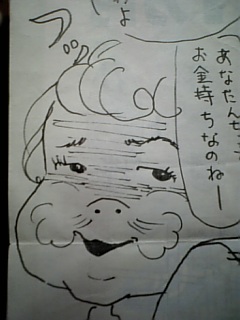 わよ
あなたんちって
お金持ちなのねー
フッ